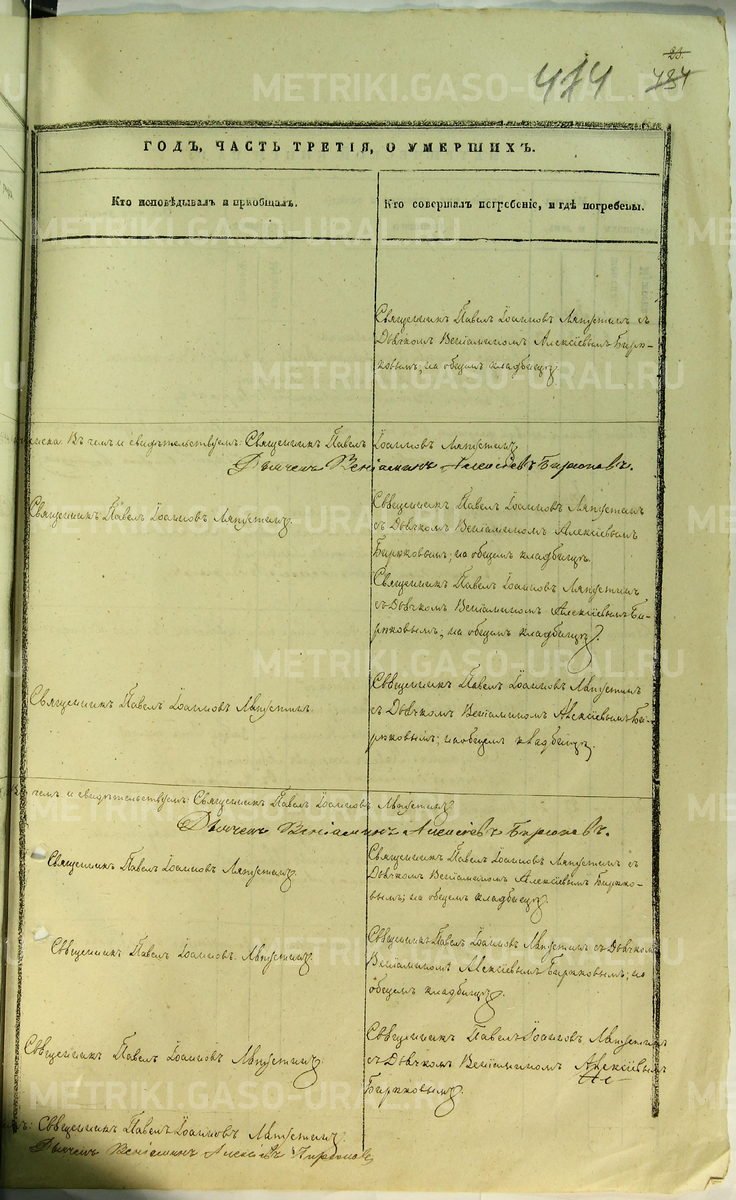 25.
414 484
METRIKI.GASO-URAL.RU
ГОДЪ, ЧАСТЬ ТРЕТІЯ, О УМЕРШИХЪ.
Кто исповѣдывалъ и пріобщалъ.
Кто совершалъ погребеніе, и гдѣ погребены.
Священникъ Павелъ Іоанновъ Ляпустинъ съ
Дьячкомъ Веніаминомъ Алексіевымъ Бирю-
ковымъ, на общемъ кладбищѣ.
въ чемъ и свидѣтельствуемъ: Священникъ Павелъ Іоанновъ Ляпустинъ
Дьячекъ Веніаминъ Алексіевъ Бирюковъ.
Священникъ Павелъ Іоанновъ Ляпустинъ.
Священникъ Павелъ Іоанновъ Ляпустинъ
съ Дьячкомъ Веніаминомъ Алексіевымъ
Бирюковымъ, на общемъ кладбищѣ.
Священникъ Павелъ Іоанновъ Ляпустинъ
съ Дьячкомъ Веніаминомъ Алексіевымъ Би-
рюковымъ, на общемъ кладбищѣ.
Священникъ Павелъ Іоанновъ Ляпустинъ
Священникъ Павелъ Іоанновъ Ляпустинъ
съ Дьячкомъ Веніаминомъ Алексіевымъ Би-
рюковымъ, на общемъ кладбищѣ.
чемъ и свидѣтельствуемъ: Священникъ Павелъ Іоанновъ Ляпустинъ
Дьячекъ Веніаминъ Алексіевъ Бирюковъ.
Священникъ Павелъ Іоанновъ Ляпустинъ
Священникъ Павелъ Іоанновъ Ляпустинъ съ
Дьячкомъ Веніаминомъ Алексіевымъ Бирюко-
вымъ, на общемъ кладбищѣ
Священникъ Павелъ Іоанновъ Ляпустинъ
Священникъ Павелъ Іоанновъ Ляпустинъ съ Дьячкомъ
Веніаминомъ Алексіевымъ Бирюковымъ, на
общемъ кладбищѣ.
Священникъ Павелъ Іоанновъ Ляпустинъ
Священникъ Павелъ Іоанновъ Ляпустинъ
съ Дьячкомъ Веніаминомъ Алексіевымъ
Бирюковымъ
Священникъ Павелъ Іоанновъ Ляпустинъ
Дьячекъ Веніаминъ Алексіевъ Бирюковъ